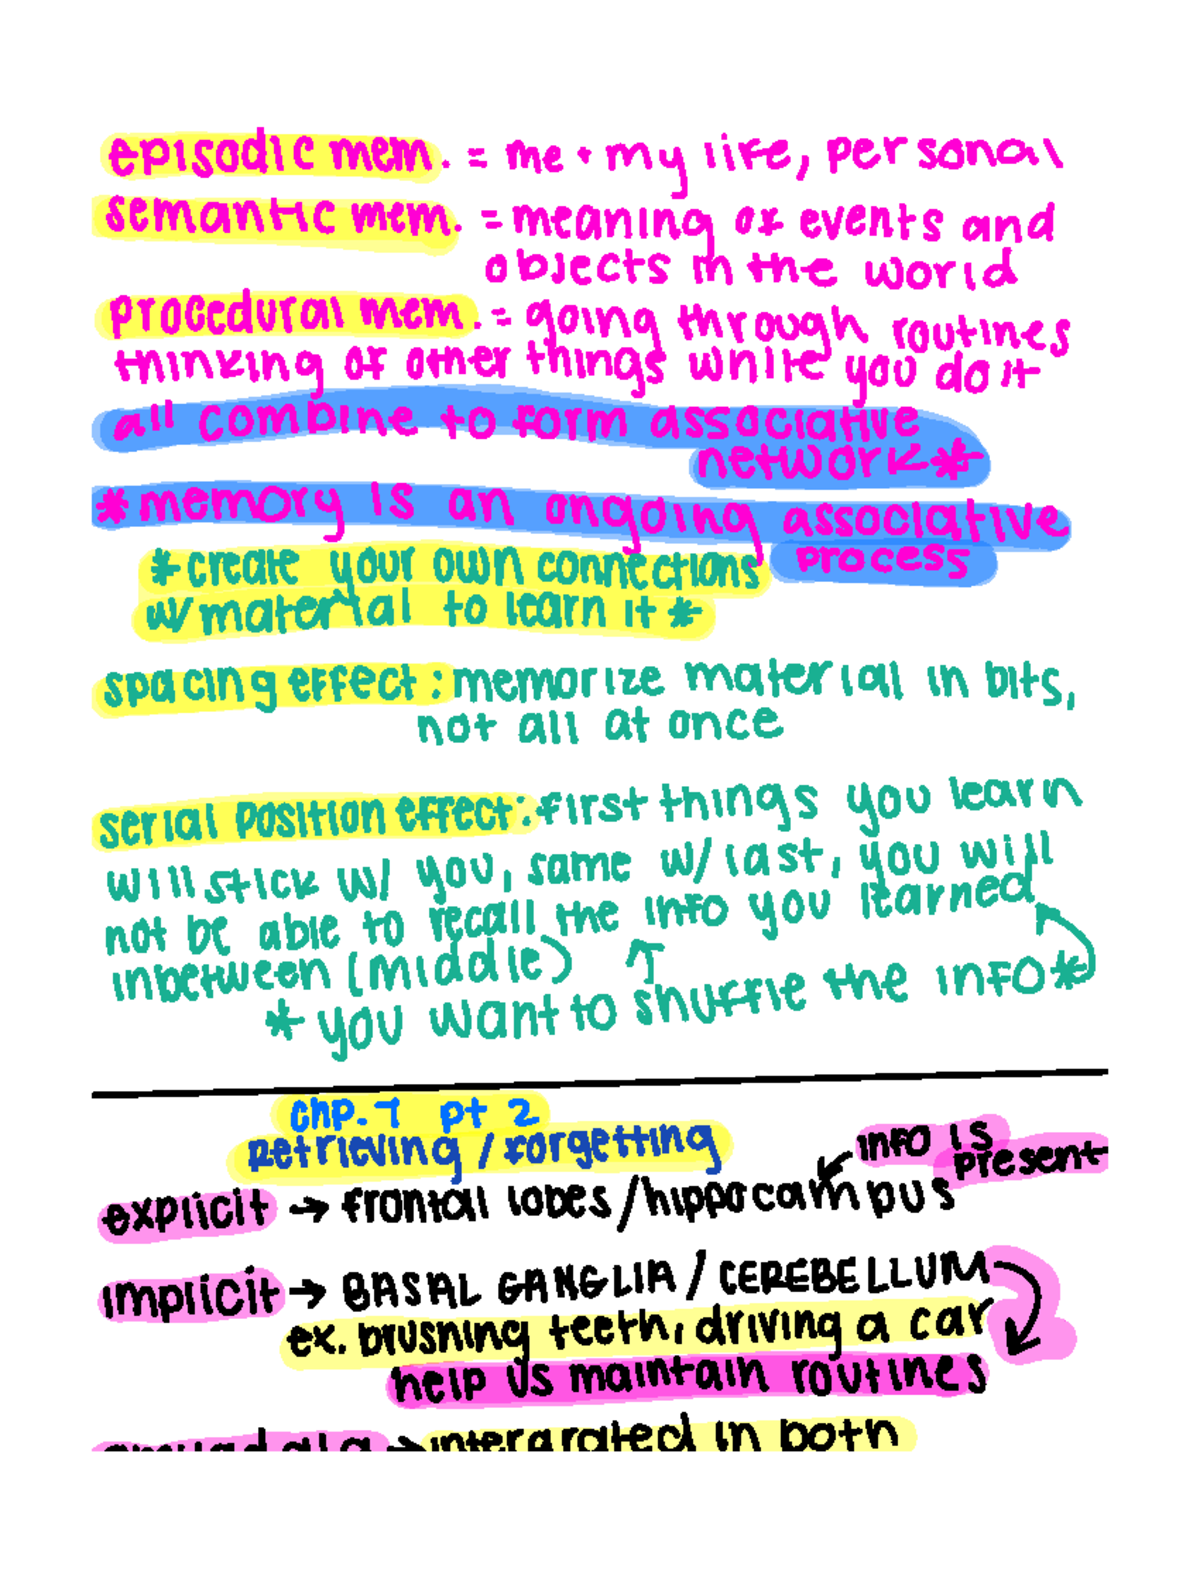 episodic mem. = me + my life, personal
semantic mem. = meaning of events and
objects in the world
procedural mem. = going through routines
thinking of other things while you do it
all combine to form associative
network*
*memory is an ongoing associative
process
*create your own connections
w/ material to learn it*
spacing effect: memorize material in bits,
not all at once
serial position effect: first things you learn
will stick w/ you, same w/ last, you will
not be able to recall the info you learned
inbetween (middle)
* you want to shuffle the info*
Chp. 7 pt 2
Retrieving / forgetting
info is
present
explicit → frontal lobes / hippocampus
implicit → BASAL GANGLIA / CEREBELLUM
ex. brushing teeth, driving a car
help us maintain routines
amygdala → intergrated in both